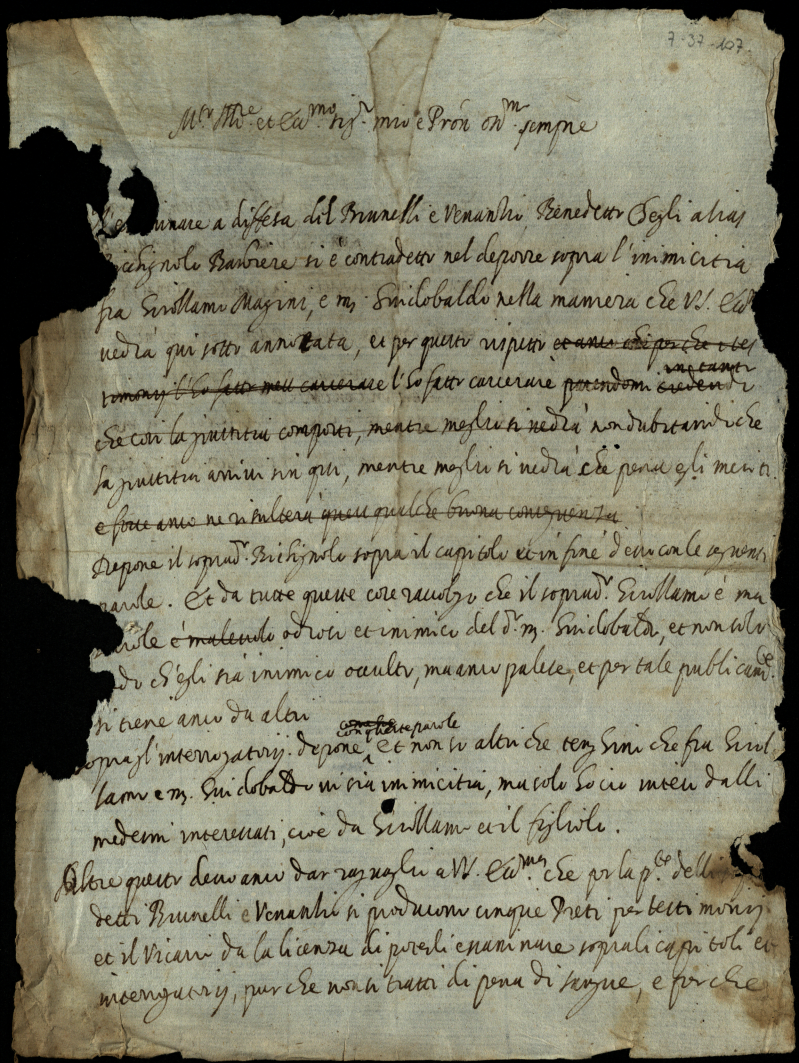 7-37-107
Ill.re et Ecc.mo Sig.r mio e Pron oss.mo sempre
a diffesa dil Brunelli e Venantio, Benedetto alias
Barbiere si è contradetto nel deporre sopra l'inimicitia
fra Girollamo Magini, e m. Guidobaldo nella maniera che VS. Ecc.ma
vedrà qui sotto annotata, et per questo rispetto et anco perche i tes
timonij l'hò fatto carcerare l'hò fatto carcerare potendomi
che con la giustitia comporti, mentre meglio si vedrà non dubitando che
la giustitia arrivi sin qui, mentre meglio si vedrà che pena egli meriti
e forse anco ne risulterà qualche buona conseguenza
Depone il soprad.o Bichignolo sopra il capitolo et in fine d'esso con le seguenti
parole. Et da tutte queste cose raccolgo che il soprad.o Girollamo è ma
è malevolo odioso et inimico del d.o m. Guidobaldo, et non solo
ch'egli sia inimico occulto, ma anco palese, et per tale publicam.te
si tiene anco da altri
con queste parole
sopra gl'interrogatorij depone Et non so altro che tenghino che fra Girol
lamo e m. Guidobaldo vi sia inimicitia, ma solo hò ciò inteso dalli
medesmi interessati, cioè da Girollamo et il figliolo.
Oltre questo devo anco dar raguaglio a VS. Ecc.ma che per la p.te delli
detti Brunelli e Venantio si producono cinque Preti per testimonij
et il Vicario da la licenza di poterli essaminare sopra li capitoli et
interrogatorij, pur che non si tratti di pena di sangue, e perche